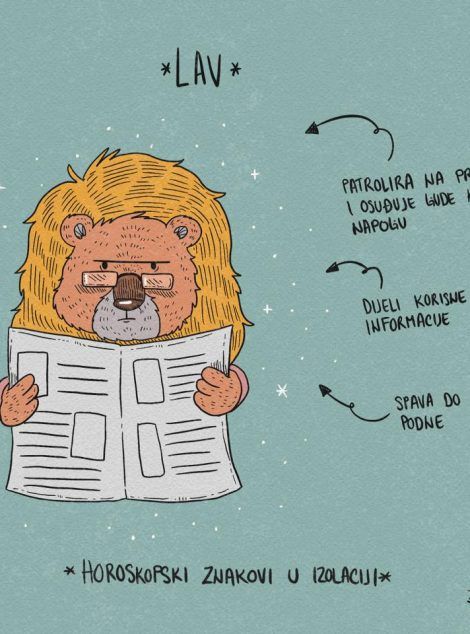 *LAV*
PATROLIRA NA
I OSUĐUJE LJUDE
NAPOLJU
DIJELI KORISNE
INFORMACIJE
SPAVA DO
PODNE
*HOROSKOPSKI ZNAKOVI U IZOLACIJI*